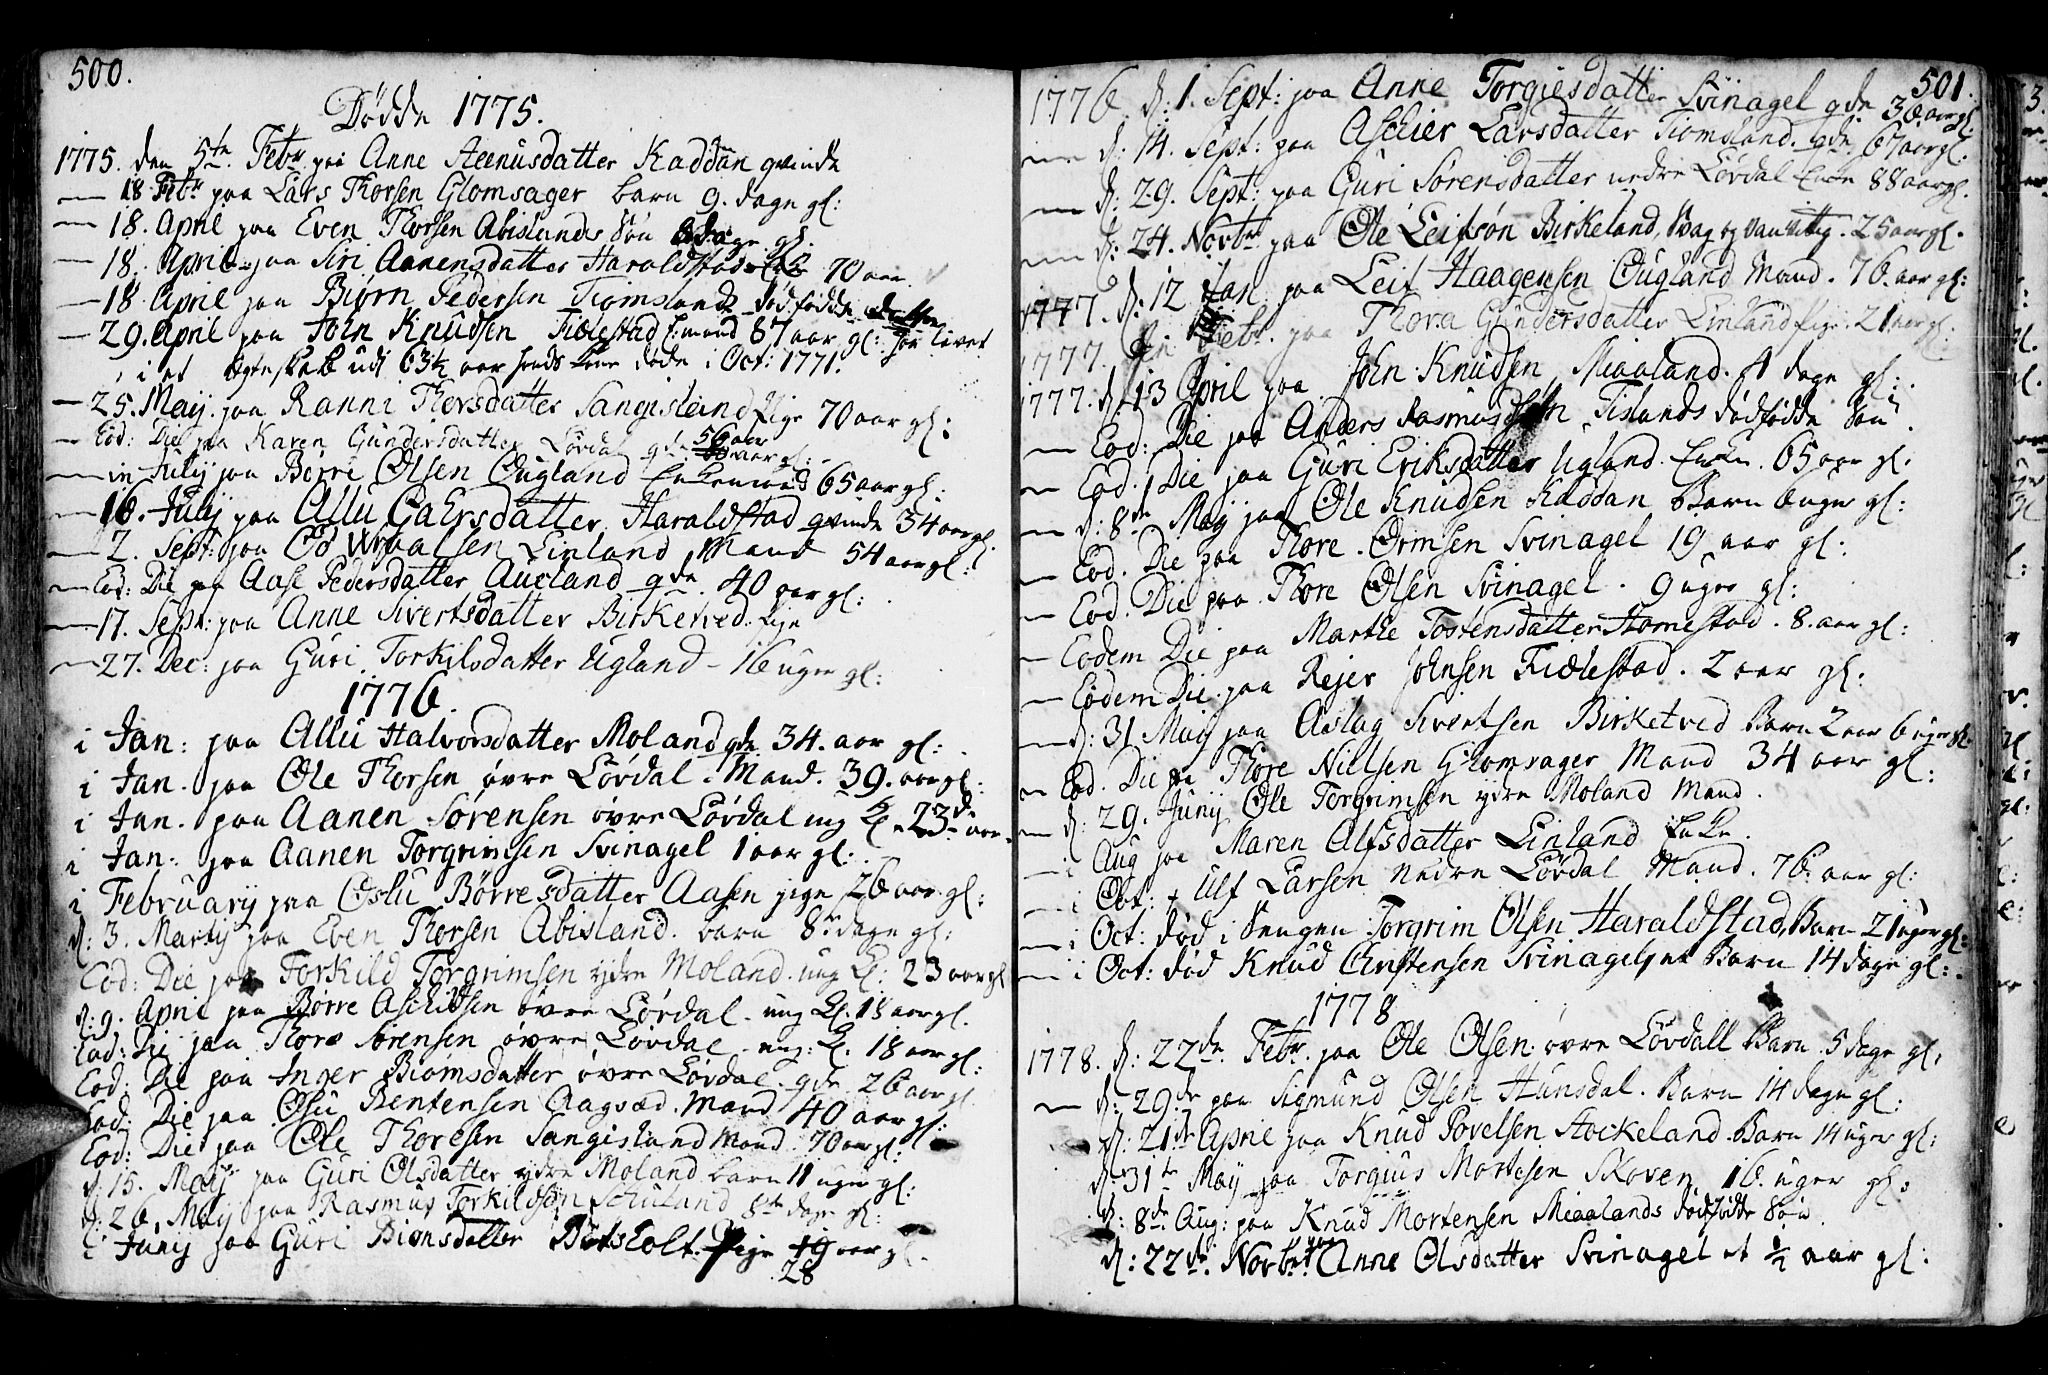 500.
Dødde 1775.
1775. den 5te Febr. paa Anne Steenusdatter Kaddan qvinde
— 18 Febr paa Lars Thorsen Glomsager barn 9. dage gl:
— 18. April paa Even Thorsen Abislands Søn dage gl.
— 18. April paa Siri Aanensdatter Haraldstad Enke 70 aar
— 18 April paa Biørn Pedersen Tiomslands dødfødde datter
— 29. april paa John Knudsen Fiælestad E:mand 87 aar gl: har levet
i et Ægteskab udi 63½ aar hands kone døde i Oct: 1771.
— 25. Maij. paa Ranni Thorsdatter Sangisland Pige 70 aar gl:
— Eod: Die paa Karen Gundersdatter Lövdal qde 56 aar gl:
— in Julij paa Berre Olsen Øugland Enkemand 65 aar gl:
— 16. Julij paa Allu Gaersdatter Haraldstad qvinde 34 aar gl.
— 2. Sept: paa Od Linland Mand 54 aar gl:
— Eod: Die paa Aase Pedersdatter Aucland qde. 40 aar gl:
— 17. Sept: paa Anne Sivertsdatter Birketved. Pige
— 27. Dec: paa Guri Torkilsdatter Ugland — 16 uger gl:
1776.
i Jan: paa Allu Halvorsdatter Moland qde 34. aar gl:
i Jan. paa Ole Thorsen øvre Lövdal. Mand. 39. aar gl:
i Jan. paa Aanen Sørensen øvre Lövdal ung K. 23de aar
i Jan: paa Aanen Torgrimsen Svinagel 1 aar gl:
i Februarij paa Oslu Børresdatter Aasen pige 26 aar. gl:
d: 3. Martij paa Even Thorsen Abisland. barn 8te dage gl:
Eod: Die paa Torkild Torgrimsen ydre Moland. ung K: 23 aar gl
d: 9. April paa Børre Aschildsen øvre Lövdal. ung K. 18 aar gl.
Eod: Die paa Thore Sørensen øvre Lövdal ung: K. 18 aar gl:
Eod: Die paa Inger Biørnsdatter øvre Lövdal. qde 26 aar gl
Eod: Die paa Osu Bentensen Aagsæd. Mand 40 aar gl:
Eod: Die paa Ole Thoresen Sangisland Mand 70 aar gl:
d: 15. Maij paa Guri Olsdatter ydre Moland. barn 11 uger gl:
d: 26. Maij paa Rasmus Torkildsen 8te dage gl:
i Junij paa Guri Biønsdatter Butsholt. Pige 19 aar gl.
28
501.
1776 d: 1. Sept: paa Anne Torgiesdatter Svinagel qde 36 aar gl.
— d: 14. Sept: paa Aschier Larsdatter Tiomsland. qde. 67 aar gl.
— d: 29. Sept: paa Guri Sørensdatter nedre Lövdal Enke 88 aar gl.
— d: 24. Novbr paa Ole Leifsøn Birkeland, svag og vanvittig. 25 aar gl.
1777. d: 12 Jan. paa Leif Haagensen Øugland Mand. 76. aar gl:
1777. Febr. paa Thora Gundersdatter Linland Pige. 21 aar gl:
1777. d. 13 April paa John Knudsen Miaaland. 4 dage gl:
— Eod: Die paa Anders Rasmusdsen Tislands dødfødde Søn.
— Eod. Die paa Guri Eriksdatter Ugland. Enke. 65 aar gl.
— d: 8de Maij paa Ole Knudsen Kaddan Barn 6 uger gl:
— Eod. Die paa Thore Ormsen Svinagel 19 aar gl:
— Eod. Die paa Thore Olsen Svinagel. 9 uger gl:
— Eodem Die paa Marthe Tostensdatter Homestad. 8. aar gl:
— Eodem Die. paa Rejer Johnsen Fiælestad. 2 aar gl:
— d: 31 Maij paa Aslag Sivertsen Birketved Barn 2 aar 6 uger gl.
— Eod. Die paa Thore Nielsen Glomsager Mand 34 aar gl:
— d: 29. Junij Ole Torgrimsen ydre Moland Mand.
— i Aug paa Maren Alfsdatter Linland Enke.
— i Oct: Ulf Larsen Nedre Lövdal Mand. 76. aar gl:
— i Oct: død i Sengen Torgrim Olsen Haraldstad, Barn 21 uger gl:
— i Oct: død Knud Christensen Svinagel, et Barn 14 dage gl:
1778
1778. d: 22de Febr. paa Ole Olsen øvre Lövdall Barn. 5 dage gl.
— d: 29de paa Sigmund Olsen Hunsdal. Barn 14 dage gl:
d: 21de April paa Knud Povelsen Stockeland Barn 14 uger gl:
d: 31te Maij paa Torgius Mortesen Skoven 16. uger gl:
d: 8de Aug: paa Knud Mortensen Miaalands dødfødde Søn.
d: 22de Novbr. paa Anne Olsdatter Svinagel et ½ aar gl: